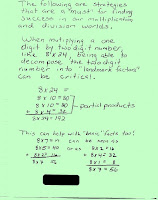 The following are strategies
that are a "must" for finding
success in our multiplication
and division worlds.
When multiplying a one
digit by two digit number,
like 8x24, being able to
decompose the two digit
number into "landmark factors"
can be critical.
8x24 =
8x10=80
8x10=80
8x4=32
partial products
8x24=192
This can help with "basic" facts too!
8x7= can be seen as
8x5=40 or as 8x2=16
8x2=16 8x4=32
8x7=56 8x1=8
8x7=56